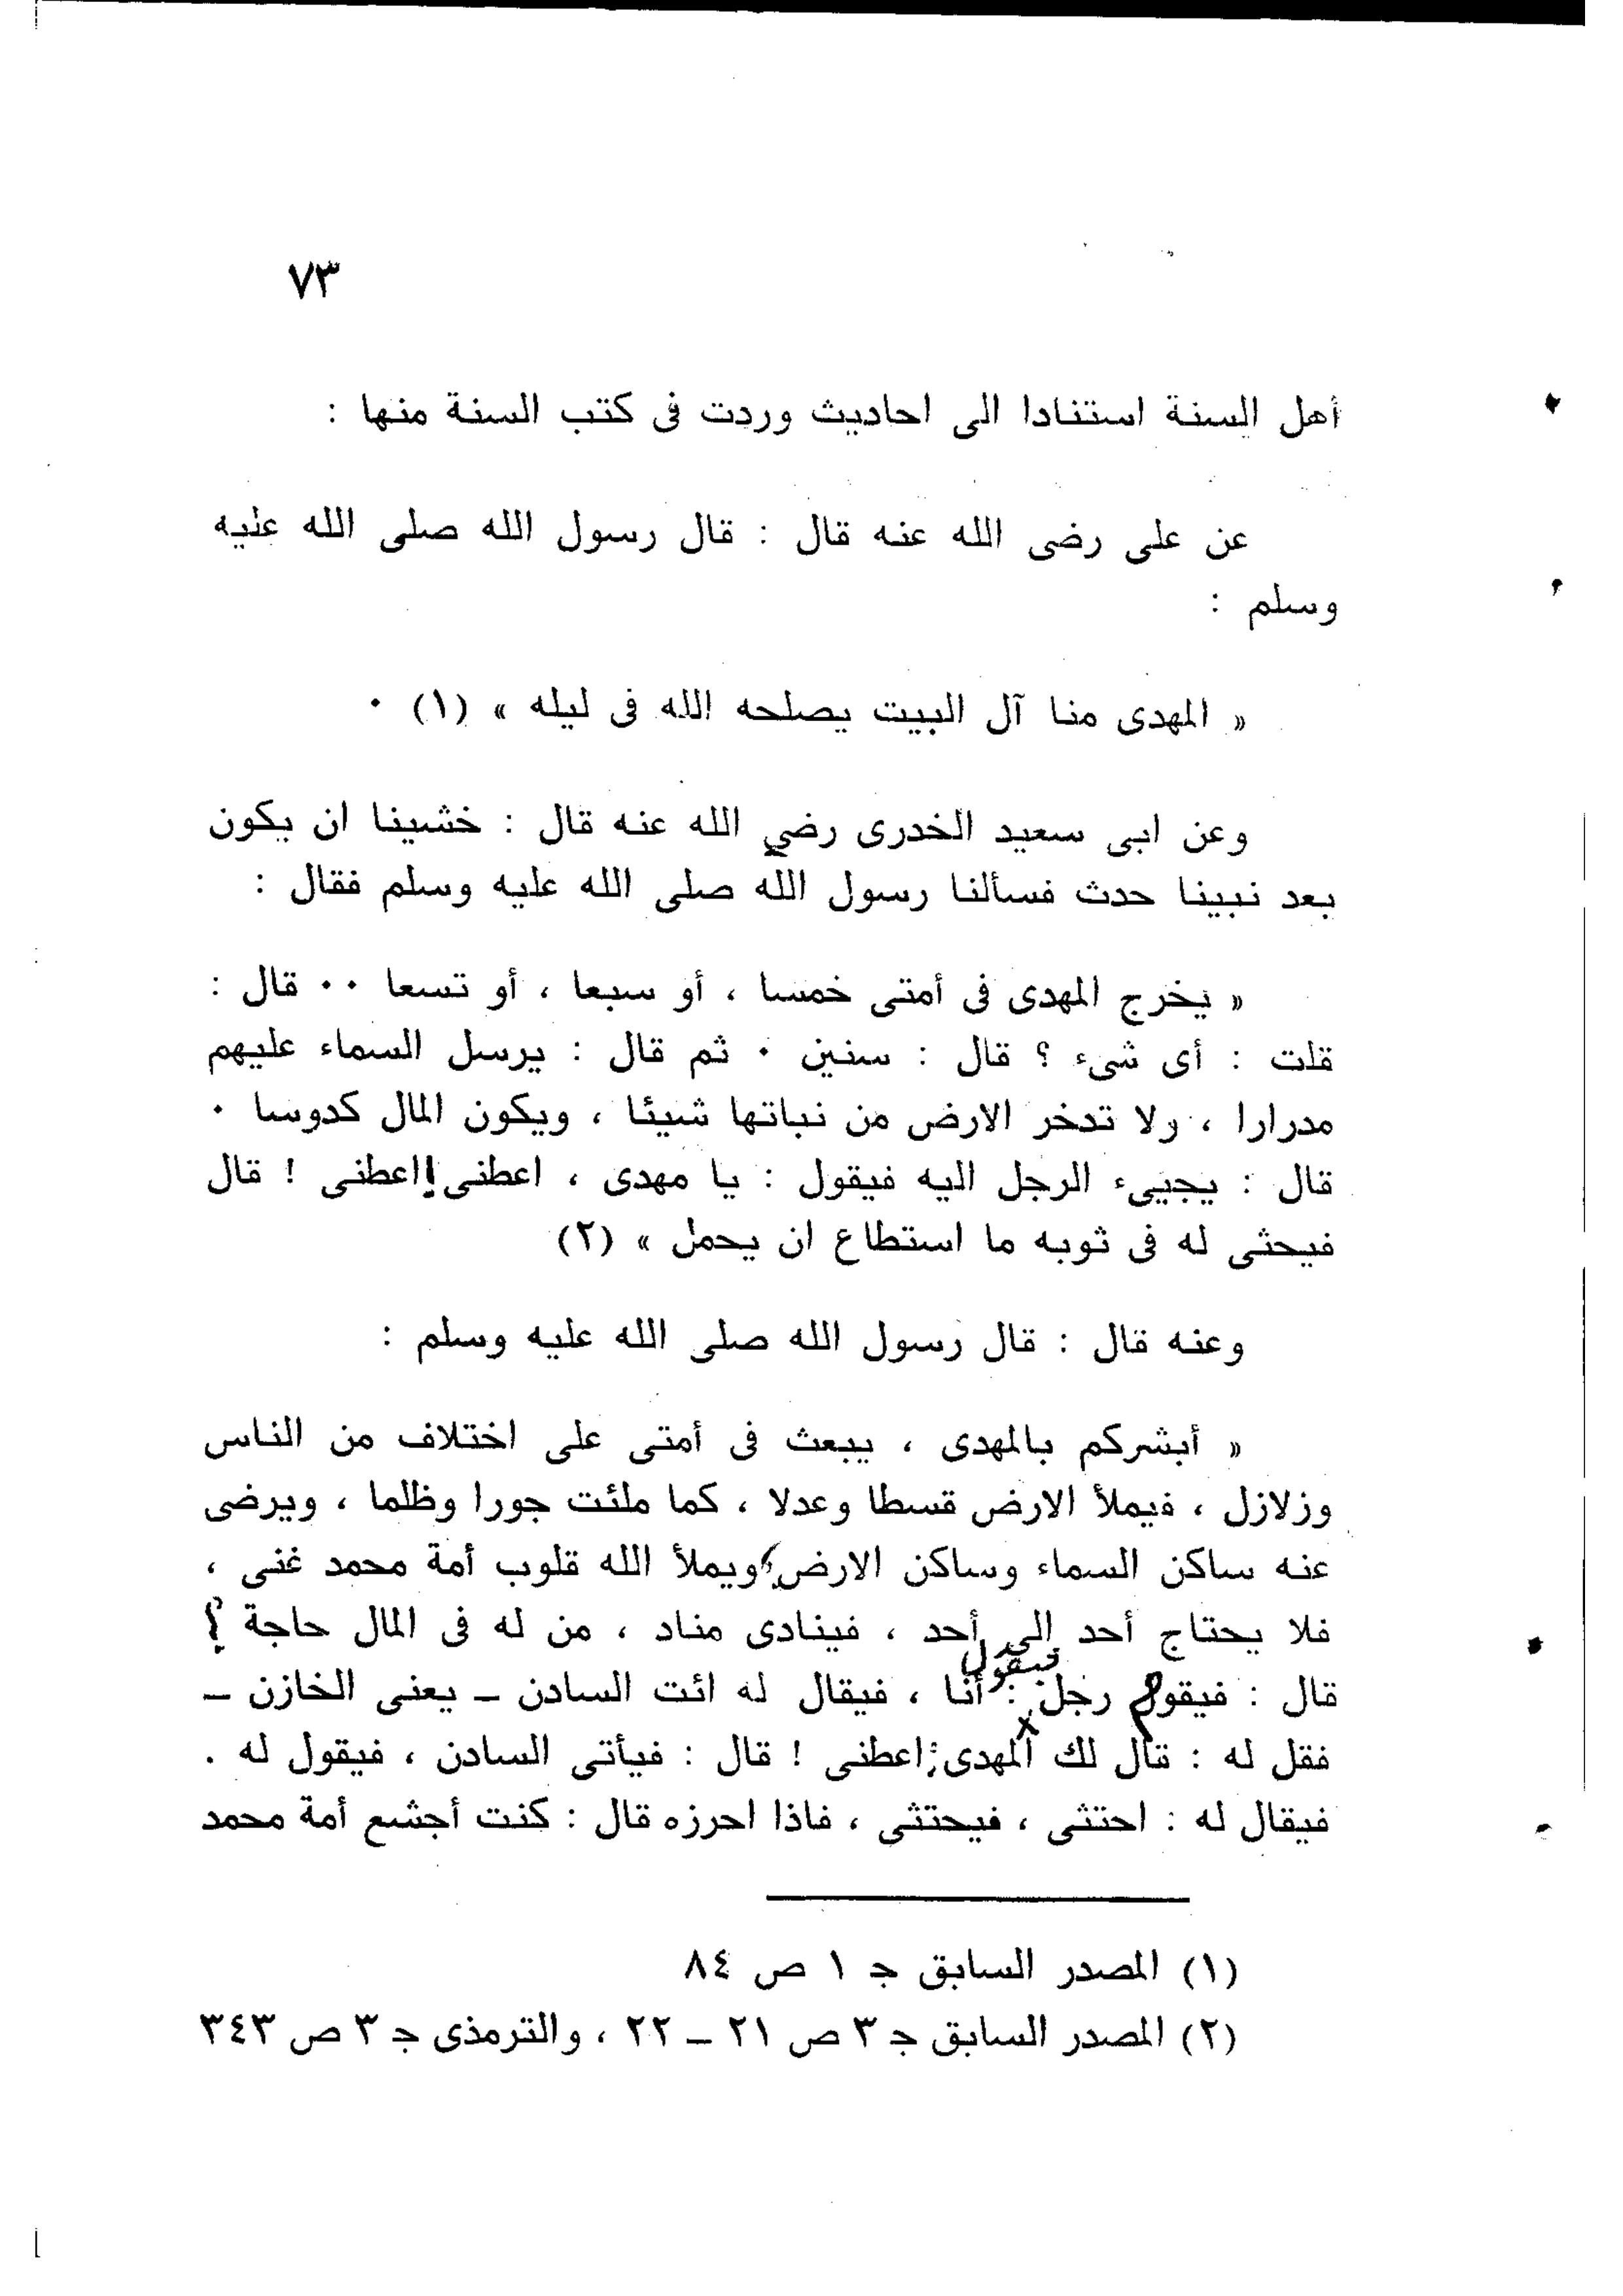 ٧٣
أهل السنة استنادا الى احاديث وردت فى كتب السنة منها :
عن على رضى الله عنه قال : قال رسول الله صلى الله عليه
وسلم :
« المهدى منا آل البيت يصلحه الله فى ليله » (١) ٠
وعن ابى سعيد الخدرى رضي الله عنه قال : خشينا ان يكون
بعد نبينا حدث فسألنا رسول الله صلى الله عليه وسلم فقال :
« يخرج المهدى فى أمتى خمسا ، أو سبعا ، أو تسعا ٠٠ قال :
قلت : أى شىء ؟ قال : سنين ٠ ثم قال : يرسل السماء عليهم
مدرارا ، ولا تدخر الارض من نباتها شيئا ، ويكون المال كدوسا ٠
قال : يجيىء الرجل اليه فيقول : يا مهدى ، اعطنى ! اعطنى ! قال
فيحثى له فى ثوبه ما استطاع ان يحمل » (٢)
وعنه قال : قال رسول الله صلى الله عليه وسلم :
« أبشركم بالمهدى ، يبعث فى أمتى على اختلاف من الناس
وزلازل ، فيملأ الارض قسطا وعدلا ، كما ملئت جورا وظلما ، ويرضى
عنه ساكن السماء وساكن الارض ، ويملأ الله قلوب أمة محمد غنى ،
فلا يحتاج أحد إلى أحد ، فينادى مناد ، من له فى المال حاجة ؟
فيقول
قال : فيقوم رجل : أنا ، فيقال له ائت السادن ــ يعنى الخازن ــ
فقل له : قال لك المهدى : اعطنى ! قال : فيأتى السادن ، فيقول له .
فيقال له : احتثى ، فيحتثى ، فاذا احرزه قال : كنت أجشع أمة محمد
(١) المصدر السابق جـ ١ ص ٨٤
(٢) المصدر السابق جـ ٣ ص ٢١ ــ ٢٢ ، والترمذى جـ ٣ ص ٣٤٣